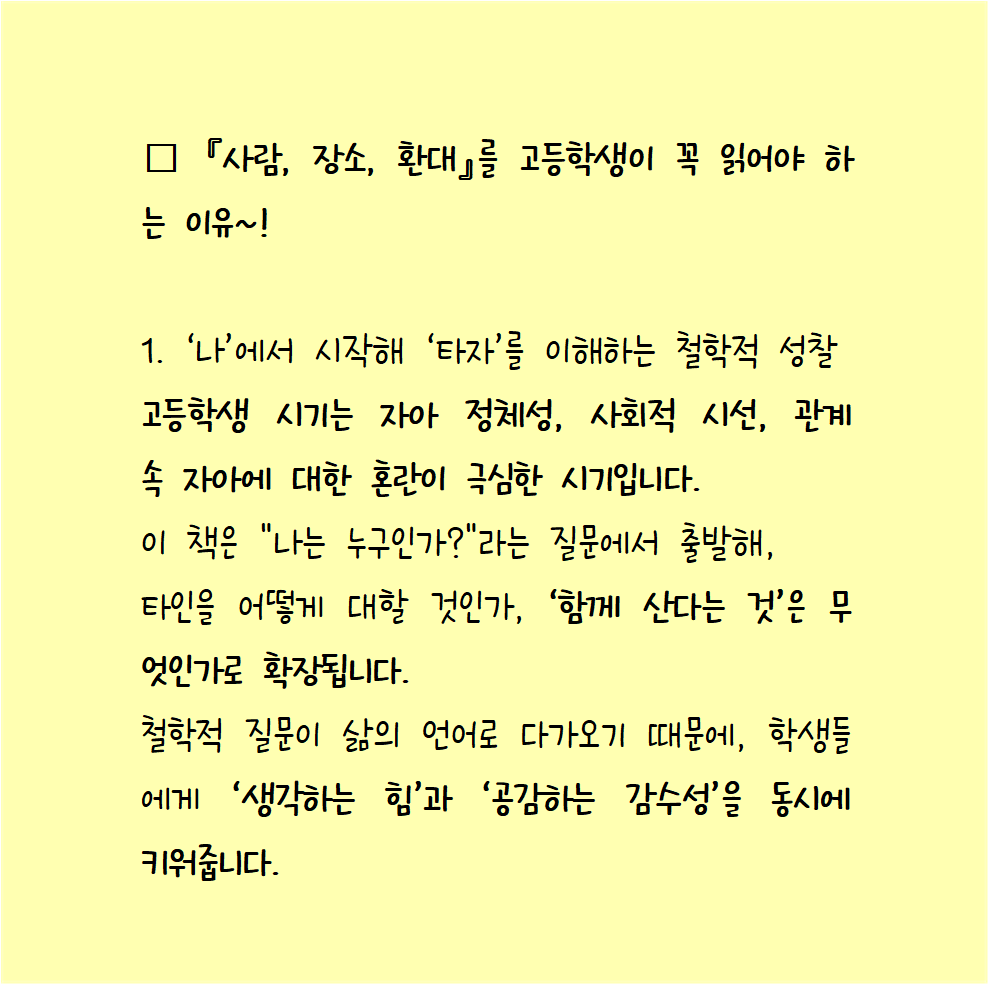 □ 『사람, 장소, 환대』를 고등학생이 꼭 읽어야 하
는 이유~!
1. ‘나’에서 시작해 ‘타자’를 이해하는 철학적 성찰
고등학생 시기는 자아 정체성, 사회적 시선, 관계
속 자아에 대한 혼란이 극심한 시기입니다.
이 책은 "나는 누구인가?"라는 질문에서 출발해,
타인을 어떻게 대할 것인가, ‘함께 산다는 것’은 무
엇인가로 확장됩니다.
철학적 질문이 삶의 언어로 다가오기 때문에, 학생들
에게 ‘생각하는 힘’과 ‘공감하는 감수성’을 동시에
키워줍니다.